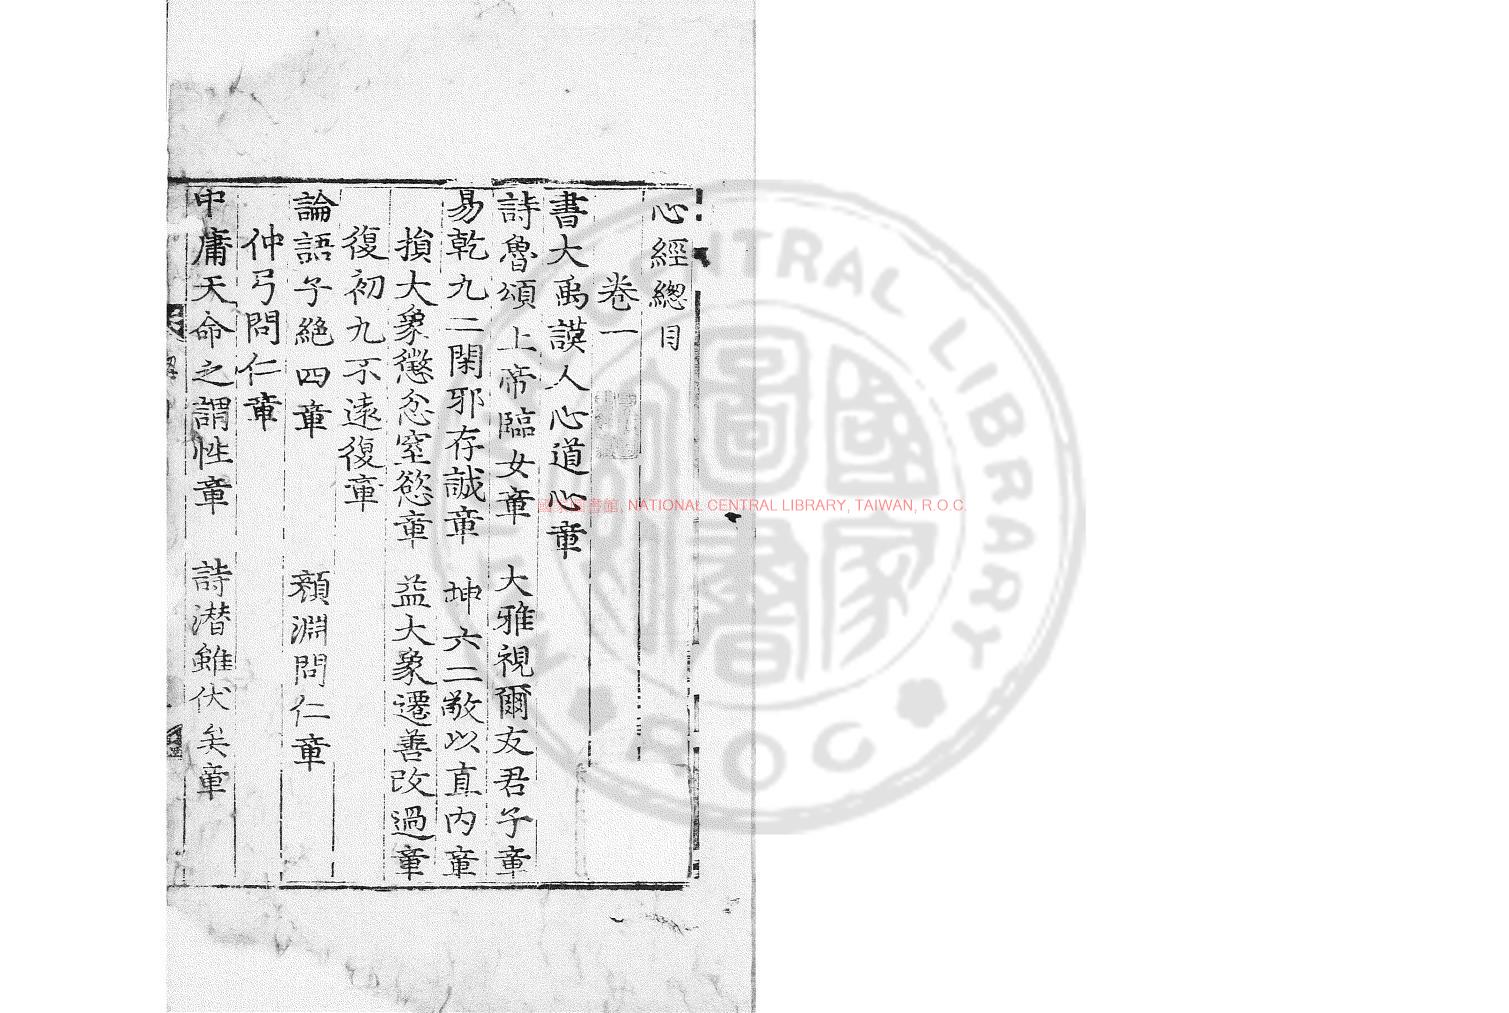 心經總目
卷一
書大禹謨人心道心章
詩魯頌上帝臨女章　大雅視爾友君子章
易乾九二閑邪存誠章　坤六二敬以直內章
損大象懲忿窒慾章　益大象遷善改過章
復初九不遠復章
論語子絕四章　顏淵問仁章
仲弓問仁章
中庸天命之謂性章　詩潛雖伏矣章
國家圖書館, NATIONAL CENTRAL LIBRARY, TAIWAN, R.O.C.
NATIONAL CENTRAL LIBRARY
ROC
國家圖書